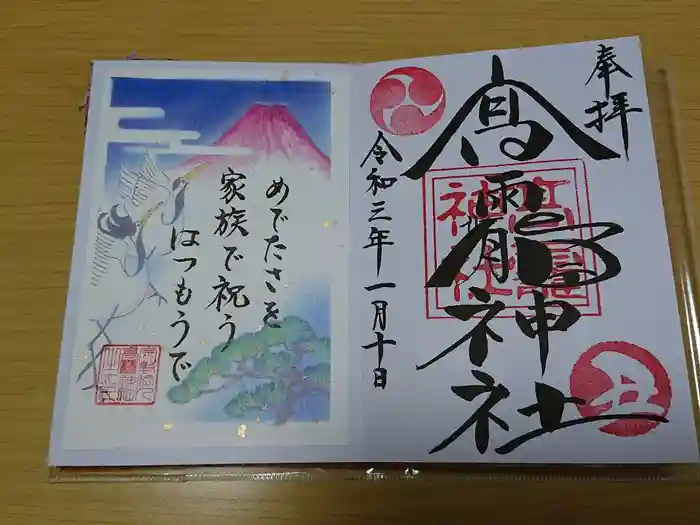 奉拝
髙龗神社
令和三年一月十日
丑
めでたさを
家族で祝う
はつもうで